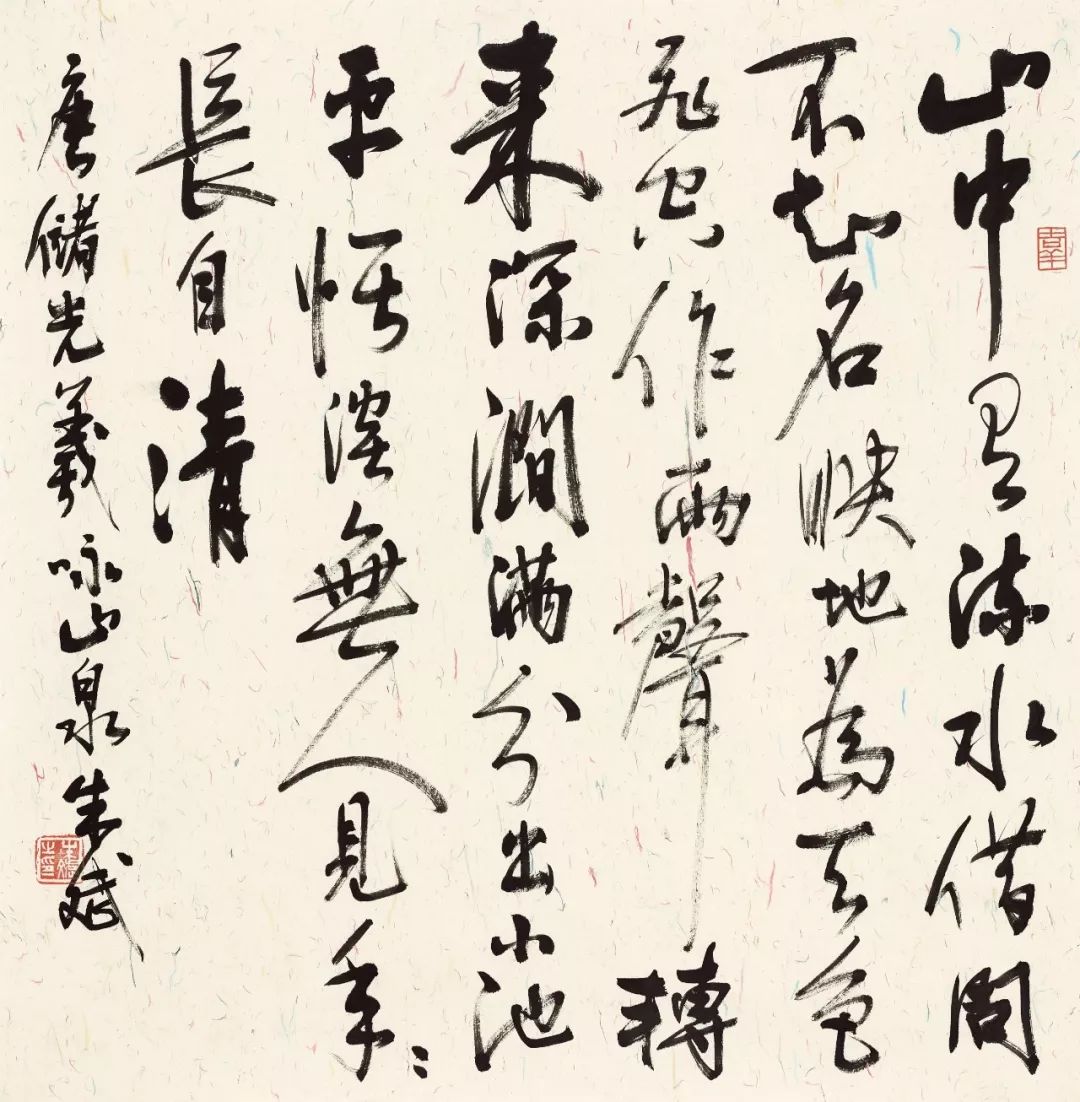 山中有流水借問
不知名映地為天色
飛空作雨聲轉
來深澗滿分出小池
平恬澹無人見年〻
長自清
唐儲光羲咏山泉朱斌